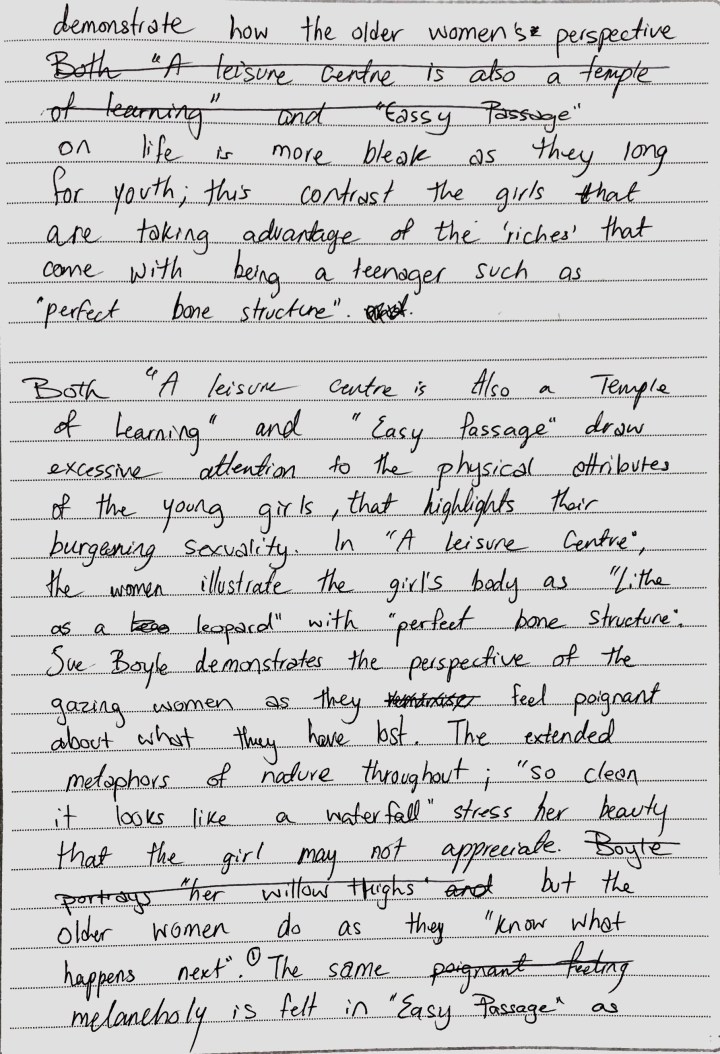 demonstrate how the older women's perspective
Both "A leisure centre is also a temple
of learning" and "Eassy Passage"
on life is more bleak as they long
for youth; this contrast the girls that
are taking advantage of the 'riches' that
come with being a teenager such as
"perfect bone structure".
Both "A leisure centre is Also a Temple
of Learning" and "Easy Passage" draw
excessive attention to the physical attributes
of the young girls, that highlights their
burgeening sexuality. In "A leisure Centre",
the women illustrate the girl's body as "Lithe
as a leopard" with "perfect bone structure".
Sue Boyle demonstrates the perspective of the
gazing women as they feel poignant
about what they have lost. The extended
metaphors of nature throughout; "so clean
it looks like a waterfall" stress her beauty
that the girl may not appreciate. Boyle
portrays "her willow thighs" and but the
older women do as they "know what
happens next".① The same poignant feeling
melancholy is felt in "Easy Passage" as